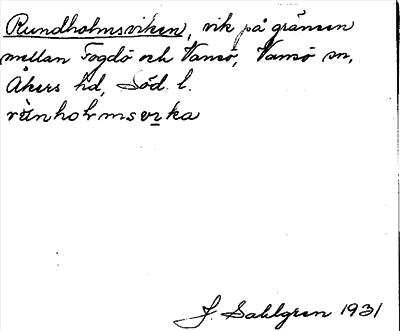 Rundholmsviken, vik på gränsen
mellan Fogdö och Vansö, Vansö sn,
Åkers hd, Söd. l.
J. Sahlgren 1931